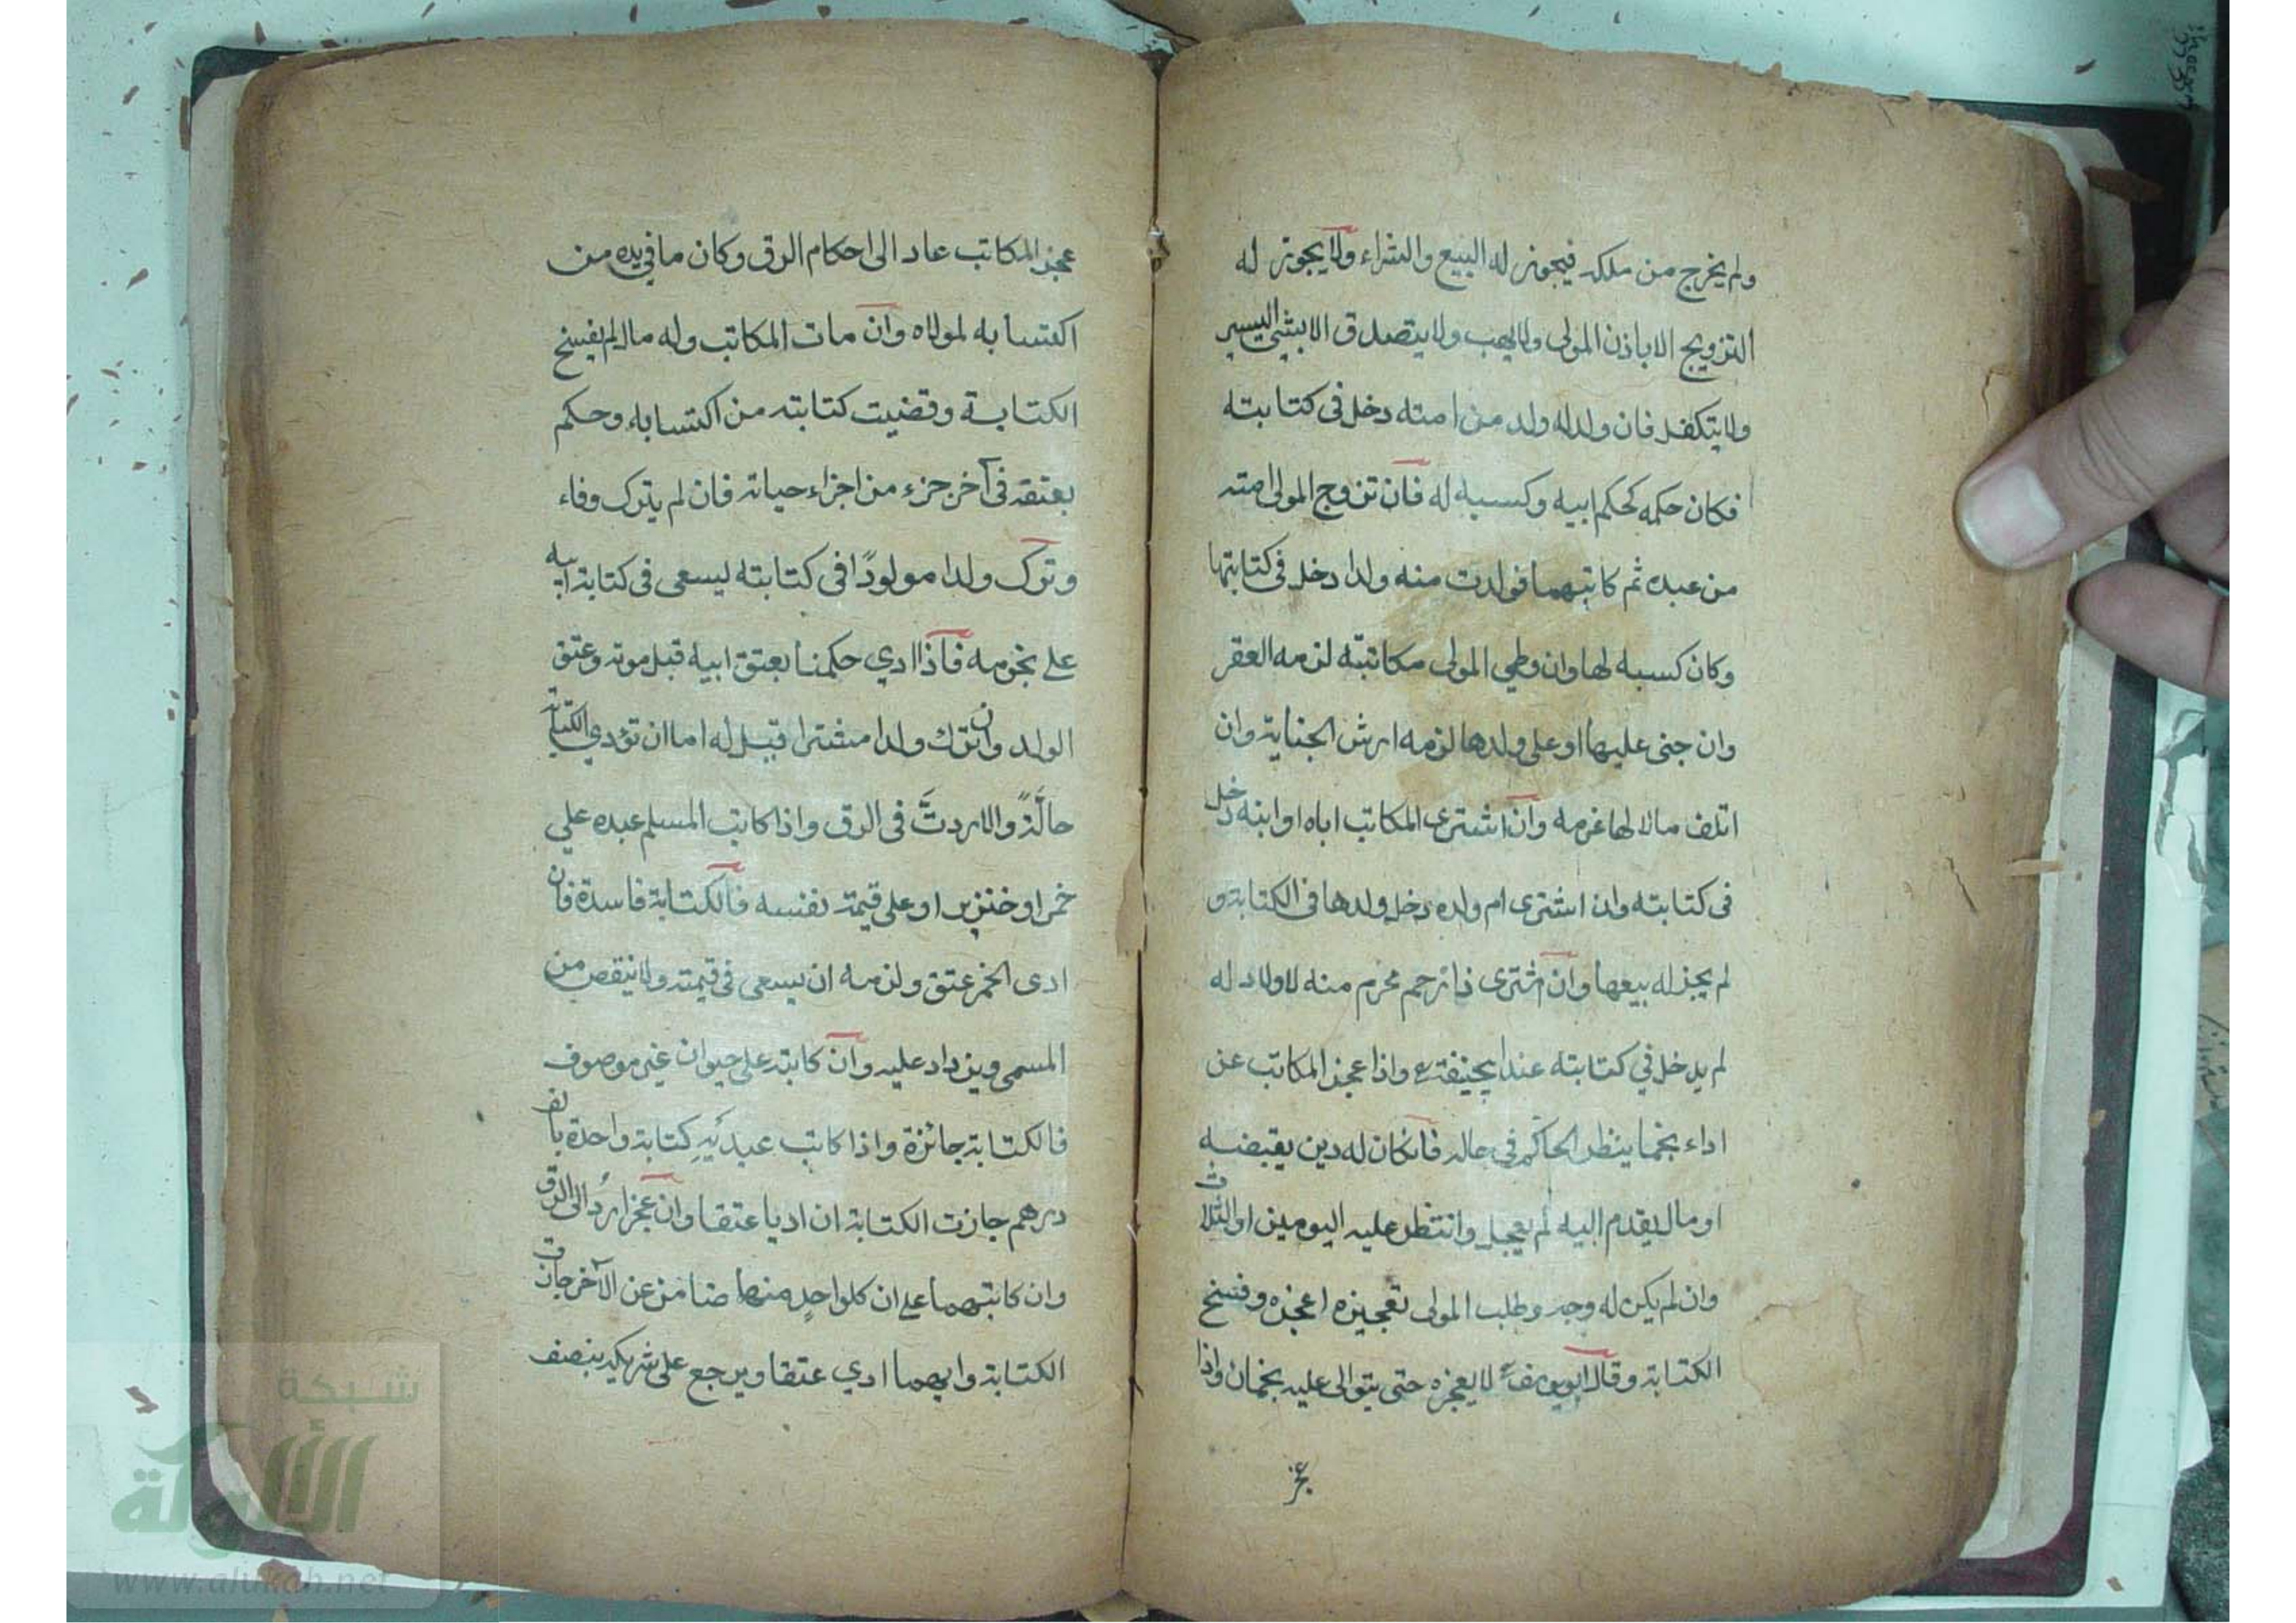 ولم يخرج من ملكه فيجوز له البيع والشراء ولا يجوز له
التزويج الا باذن المولى ولا يهب ولا يتصدق الا بشئ اليسير
ولا يتكفل فان ولد له ولد من امته دخل فى كتابته
فكان حكمه كحكم ابيه وكسبه له فان تزوج المولى امته
من عبده ثم كاتبهما فولدت منه ولدا دخل فى كتابتها
وكان كسبه لها وان وطي المولى مكاتبته لزمه العقر
وان جنى عليها او على ولدها لزمه ارش الجناية وان
اتلف مالا لها غرمه وان اشترى المكاتب اباه او ابنه دخل
فى كتابته وان اشترى ام ولده دخل ولدها فى الكتابة و
لم يجز له بيعها وان اشترى ذا رحم محرم منه لا ولاد له
لم يدخل في كتابته عند ابيحنيفة واذا عجز المكاتب عن
اداء نجما ينظر الحاكم فى حاله فانكان له دين يقبضه
او مال يقدم اليه لم يعجل وانتظر عليه اليومين او الثلاث
وان لم يكن له وجه وطلب المولى تعجيزه اعجزه وفسخ
الكتابة وقال ابو يوسف لا يعجزه حتى يتوالى عليه نجمان واذا
عجز
عجز المكاتب عاد الى احكام الرق وكان ما في يده من
اكتسابه لمولاه وان مات المكاتب وله مال لم يفسخ
الكتابة وقضيت كتابته من اكتسابه وحكم
بعتقه فى آخر جزء من اجزاء حياته فان لم يترك وفاء
وترك ولدا مولودًا فى كتابته ليسعى فى كتابة ابيه
على نجومه فاذا ادي حكمنا بعتق ابيه قبل موته وعتق
الولد وان ترك ولدا مشترا قيل له اما ان تؤدي الكتابة
حالّةً والا رددتَ فى الرق واذا كاتب المسلم عبده علي
خمر او خنزير او على قيمة نفسه فالكتابة فاسدة فان
ادى الخمر عتق ولزمه ان يسعى فى قيمته ولا ينقص من
المسمى ويزداد عليه وان كاتبه على حيوان غير موصوف
فالكتابة جائزة واذا كاتب عبديه كتابة واحدة بالف
درهم جازت الكتابة ان اديا عتقا وان عجزا ردّ الى الرق
وان كاتبهما على ان كل واحدٍ منهما ضامن عن الآخر جازت
الكتابة وايهما ادي عتقا ويرجع على شريكه بنصف
شبكة
الألوكة
www.alukah.net